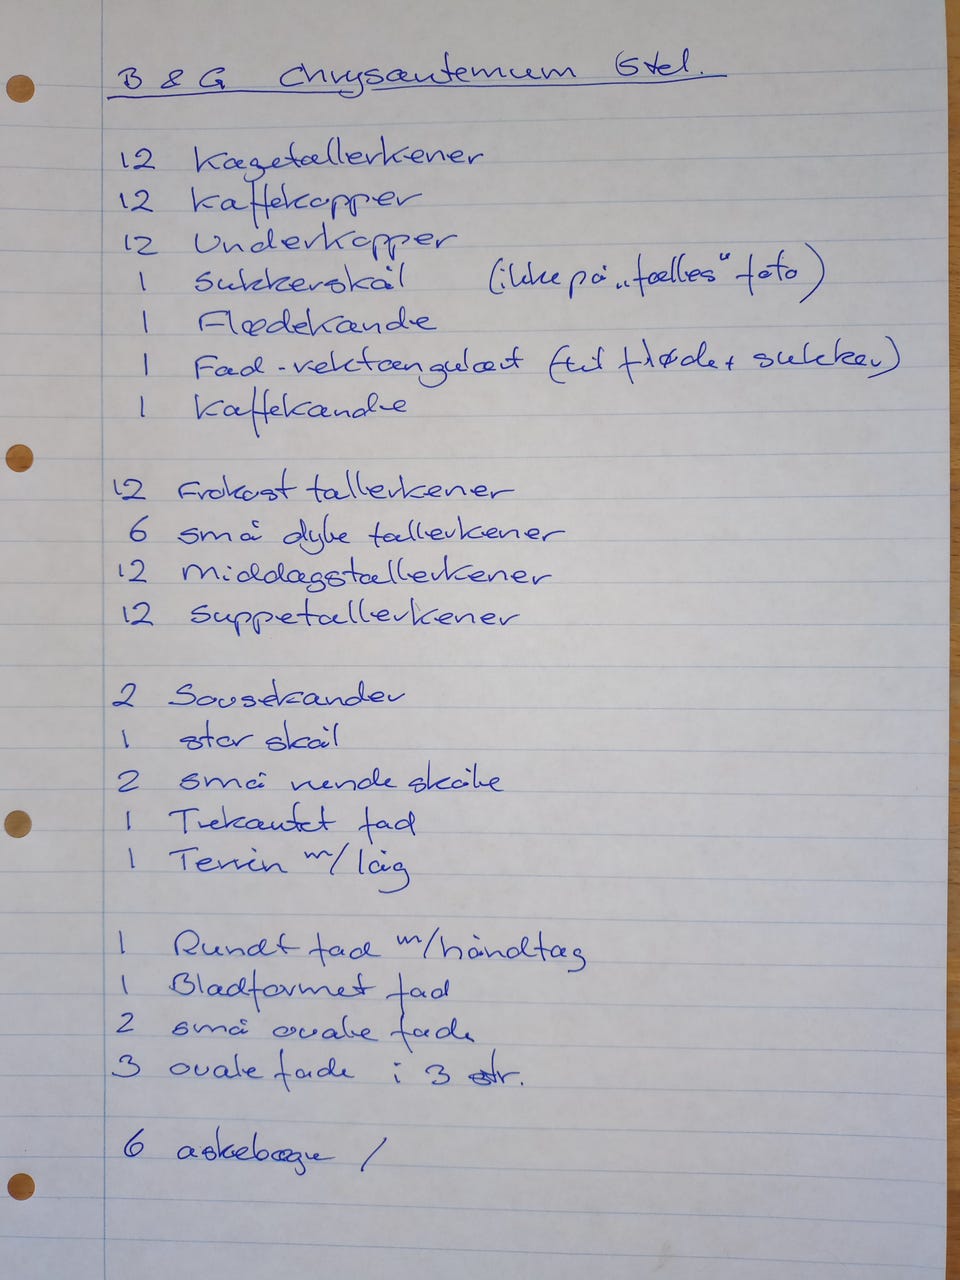 B & G Chrysantemum Stel.
12 Kagetallerkener
12 Kaffekopper
12 Underkopper
1 Sukkerskål (ikke på „fælles“ foto)
1 Flødekande
1 Fad - rektangulært (til fløde + sukker)
1 Kaffekande
12 Frokost tallerkener
6 små dybe tallerkener
12 Middagstallerkener
12 Suppetallerkener
2 Sovsekander
1 stor skål
2 små runde skåle
1 Trekantet fad
1 Terrin m/låg
1 Rundt fad m/håndtag
1 Bladformet fad
2 små ovale fade
3 ovale fade i 3 str.
6 askebægre /